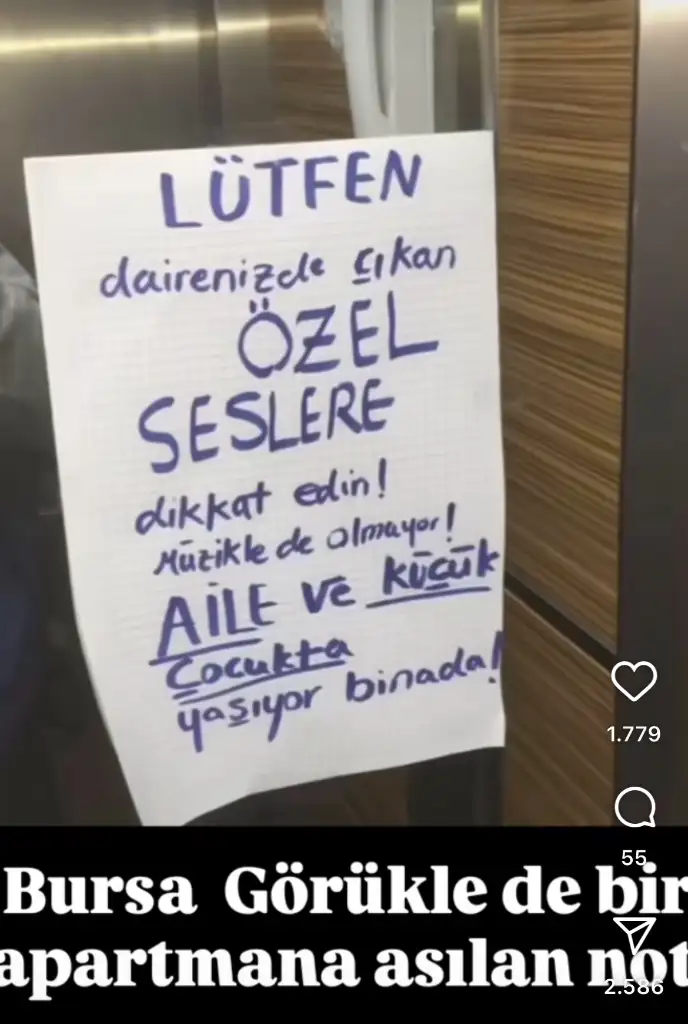 LÜTFEN
dairenizde çıkan
ÖZEL
SESLERE
dikkat edin!
Müzikle de olmayor!
AİLE ve küçük
Çocukta
yaşıyor binada!
1.779
55
Bursa Görükle de bir
apartmana asılan not
2.586